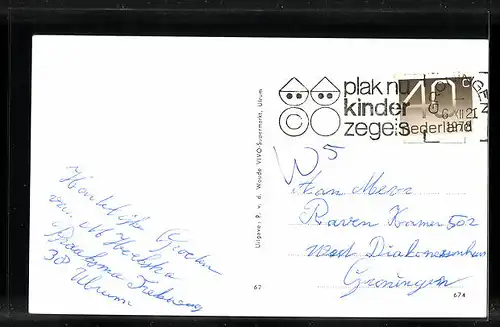 plak nu
kinder
zegels
40c
Nederland
6 XII 21
1978
W5
Aan Mevr
Raven Kamer 502
Diakonessenhuis
Groningen
Hartelijke Groeten
van
38
Ulrum
Uitgave: R. v. d. Woude VIVO-Supermarkt, Ulrum
67
674